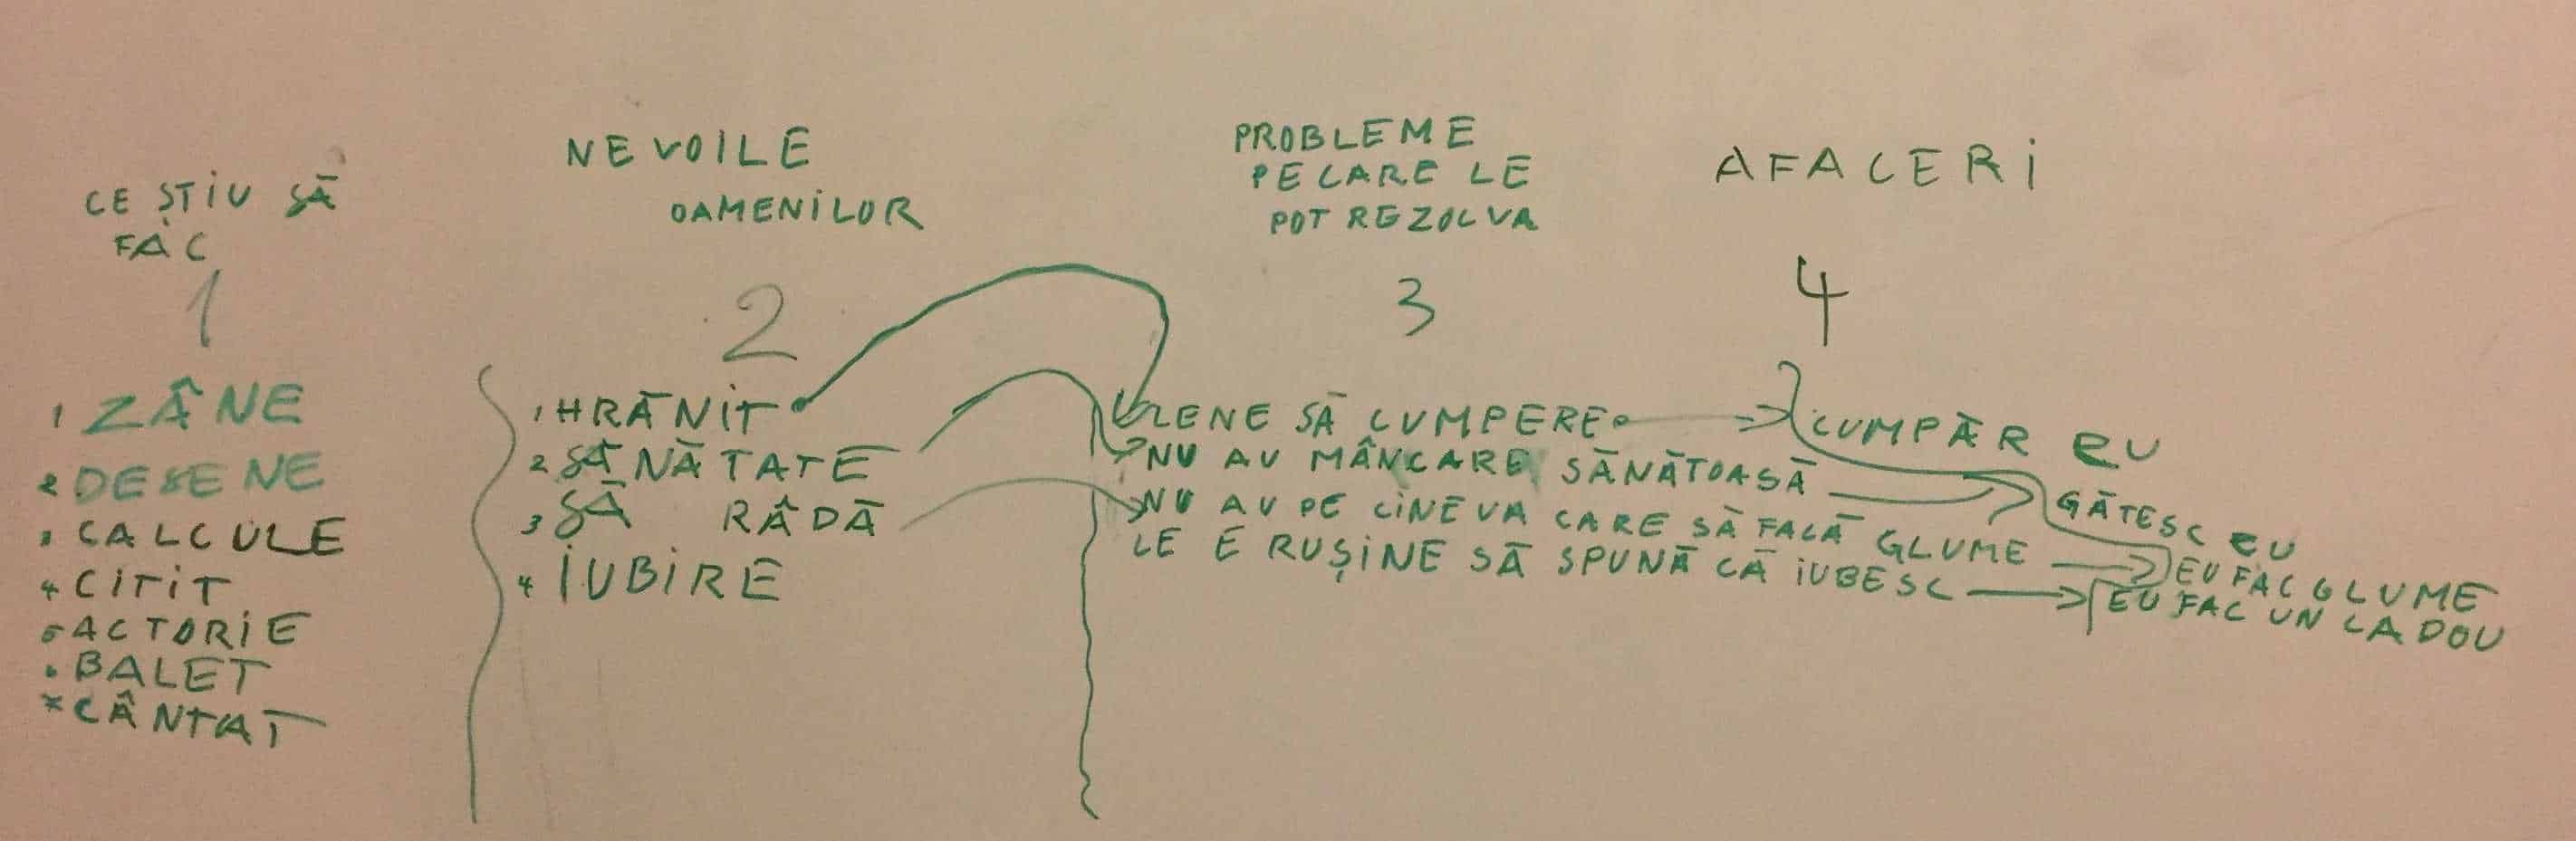 CE ȘTIU SĂ
FAC
1
1 ZÂNE
2 DESENE
3 CALCULE
4 CITIT
5 ACTORIE
6 BALET
* CÂNTAT
NEVOILE
OAMENILOR
2
1 HRĂNIT
2 SĂNĂTATE
3 SĂ RÂDĂ
4 IUBIRE
PROBLEME
PE CARE LE
POT REZOLVA
3
LENE SĂ CUMPERE
NU AU MÂNCARE SĂNĂTOASĂ
NU AU PE CINEVA CARE SĂ FACĂ GLUME
LE E RUȘINE SĂ SPUNĂ CĂ IUBESC
AFACERI
4
CUMPĂR EU
GĂTESC EU
EU FAC GLUME
EU FAC UN CADOU